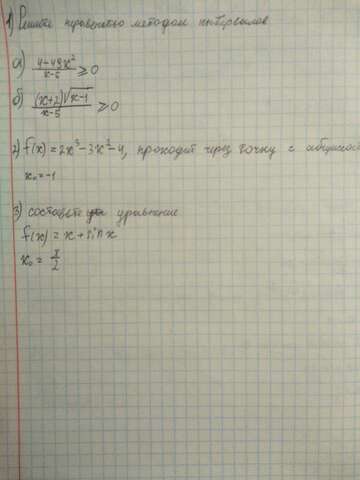 1) Решить неравенство методом интервалов
а) (4-49x²)/(x-6) ≥ 0
б) (x+2)√(x-1)/(x-5) ≥ 0
2) f(x) = 2x³-3x²-4, проходит через точку с абциссой
x₀=-1
3) составьте уравнение
f(x) = x + sin x
x₀ = π/2